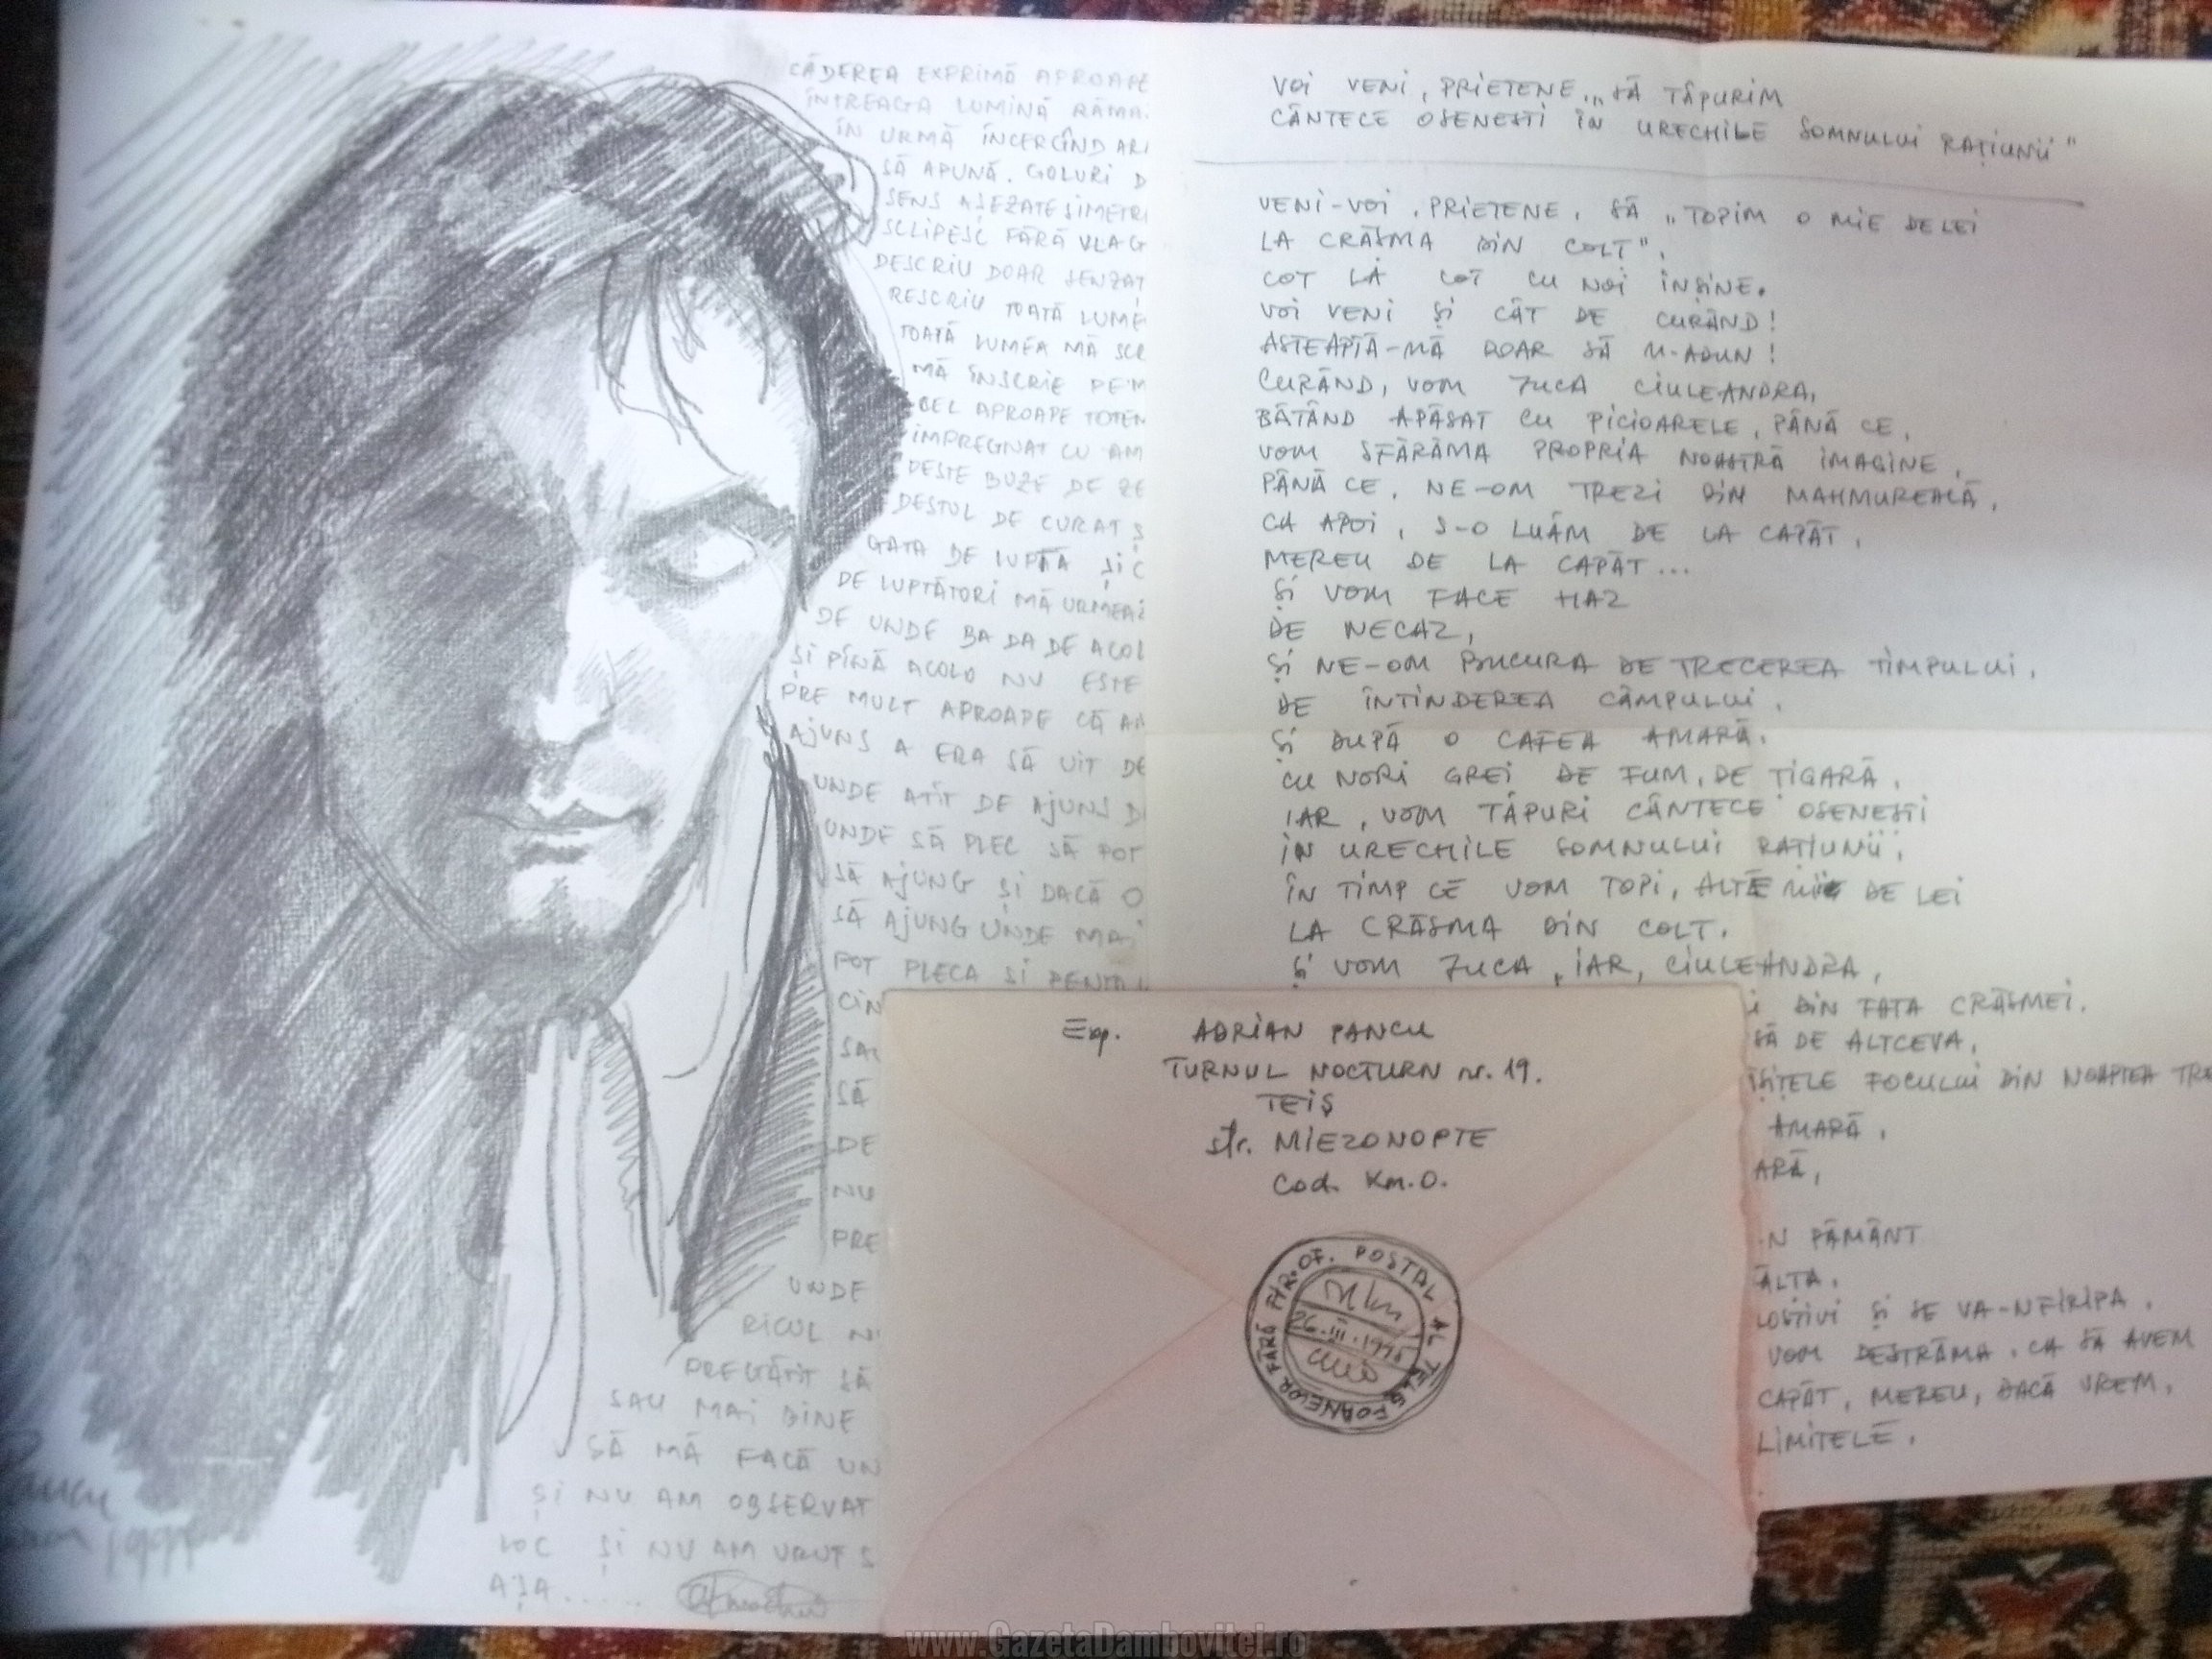 CĂDEREA EXPRIMĂ APROAPE
ÎNTREAGA LUMINĂ RĂMA
ÎN URMĂ ÎNCERCÎND ARI
SĂ APUNĂ. GOLURI D
SENS AȘEZATE SIMETRI
SCLIPESC FĂRĂ VLAG
DESCRIU DOAR SENZAT
RESCRIU TOATĂ LUME
TOATĂ LUMEA MĂ SCR
MĂ ÎNSCRIE PE'M
CEL APROAPE TOTEM
IMPREGNAT CU AM
PESTE BUZE DE ZE
DESTUL DE CURAT Ș
GATA DE LUPTĂ ȘI C
DE LUPTĂTORI MĂ URMEAZ
DE UNDE BA DA DE ACOL
ȘI PÎNĂ ACOLO NU ESTE
PRE MULT APROAPE CĂ AM
AJUNS A ERA SĂ UIT DE
UNDE ATÎT DE AJUNS D
UNDE SĂ PLEC SĂ POT
SĂ AJUNG ȘI DACĂ O
SĂ AJUNG UNDE MAI
POT PLECA SI PENTRU
CIN
SAU
SĂ
DE
NU
PRE
UNDE
RICUL N
PREGĂTIT SĂ
SAU MAI BINE
SĂ MĂ FACĂ UN
ȘI NU AM OBSERVAT
LOC ȘI NU AM VRUT S
AȘA......
VOI VENI, PRIETENE, „SĂ TÂPURIM
CÂNTECE OSENEȘTI ÎN URECHILE SOMNULUI RAȚIUNII"
VENI-VOI, PRIETENE, SĂ „TOPIM O MIE DE LEI
LA CRÂȘMA DIN COLT",
COT LA COT CU NOI ÎNȘINE.
VOI VENI ȘI CÂT DE CURÂND!
AȘTEAPTĂ-MĂ DOAR SĂ M-ADUN!
CURÂND, VOM JUCA CIULEANDRA,
BĂTÂND APĂSAT CU PICIOARELE, PÂNĂ CE,
VOM SFĂRÂMA PROPRIA NOASTRĂ IMAGINE,
PÂNĂ CE, NE-OM TREZI DIN MAHMUREALĂ,
CA APOI, S-O LUĂM DE LA CAPĂT,
MEREU DE LA CAPĂT...
ȘI VOM FACE HAZ
DE NECAZ,
ȘI NE-OM BUCURA DE TRECEREA TIMPULUI,
DE ÎNTINDEREA CÂMPULUI,
ȘI DUPĂ O CAFEA AMARĂ.
CU NORI GREI DE FUM, DE ȚIGARĂ,
IAR, VOM TÂPURI CÂNTECE OSENEȘTI
IN URECHILE SOMNULUI RAȚIUNII,
ÎN TIMP CE VOM TOPI, ALTE MII DE LEI
LA CRÂȘMA DIN COLT.
ȘI VOM JUCA, IAR, CIULEANDRA,
I DIN FAȚA CRÂȘMEI.
SĂ DE ALTCEVA,
ȘIȚELE FOCULUI DIN NOAPTEA TRE
AMARĂ,
ARĂ,
N PĂMÂNT
ALTA.
LOSTIVI ȘI SE VA-NFIRIPA,
VOM DESTRĂMA, CA SĂ AVEM
CAPĂT, MEREU, DACĂ VREM,
LIMITELE.
Exp. ADRIAN PANCU
TURNUL NOCTURN nr. 19.
TEIȘ
str. MIEZONOPTE
Cod. Km. 0.
OF. POSTAL AL TELEFOANELOR FĂRĂ FIR
26.III.199
www.GazetaDambovitei.ro